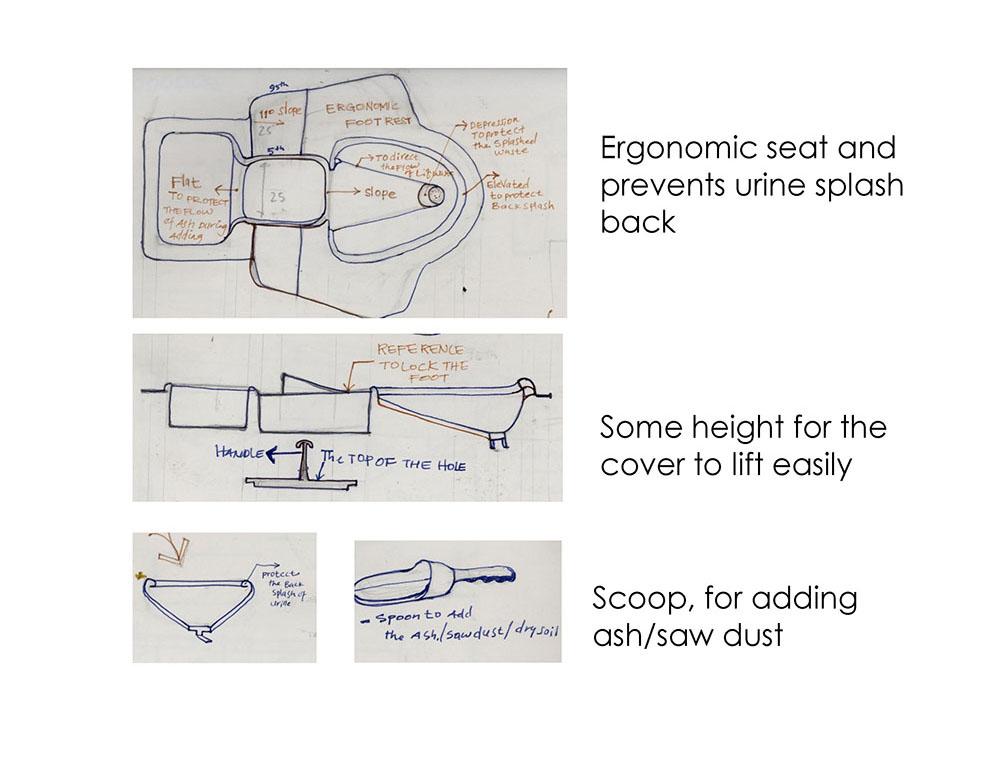 95th
11º slope
25
5th
ERGONOMIC
FOOT REST
DEPRESSION
TO protect
the splashed
waste
TO direct
the flow
of Liquid
Elevated
to protect
Back splash
slope
25
Flat
TO PROTECT
THE FLOW
of Ash During
Adding
Ergonomic seat and
prevents urine splash
back
REFERENCE
TO LOCK THE
FOOT
HANDLE
The TOP OF THE HOLE
Some height for the
cover to lift easily
protect
the Back
splash of
urine
- Spoon to Add
the Ash/sawdust/dry soil
Scoop, for adding
ash/saw dust